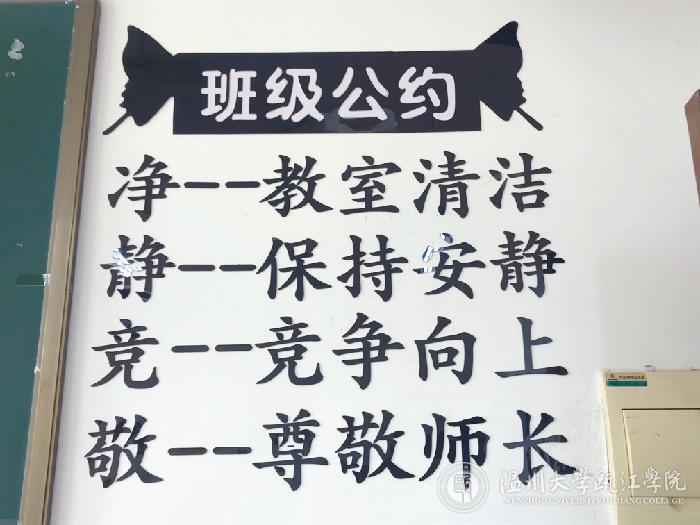 班级公约
净--教室清洁
静--保持安静
竞--竞争向上
敬--尊敬师长
温州大学瓯江学院
WENZHOU UNIVERSITY OUJIANG COLLEGE